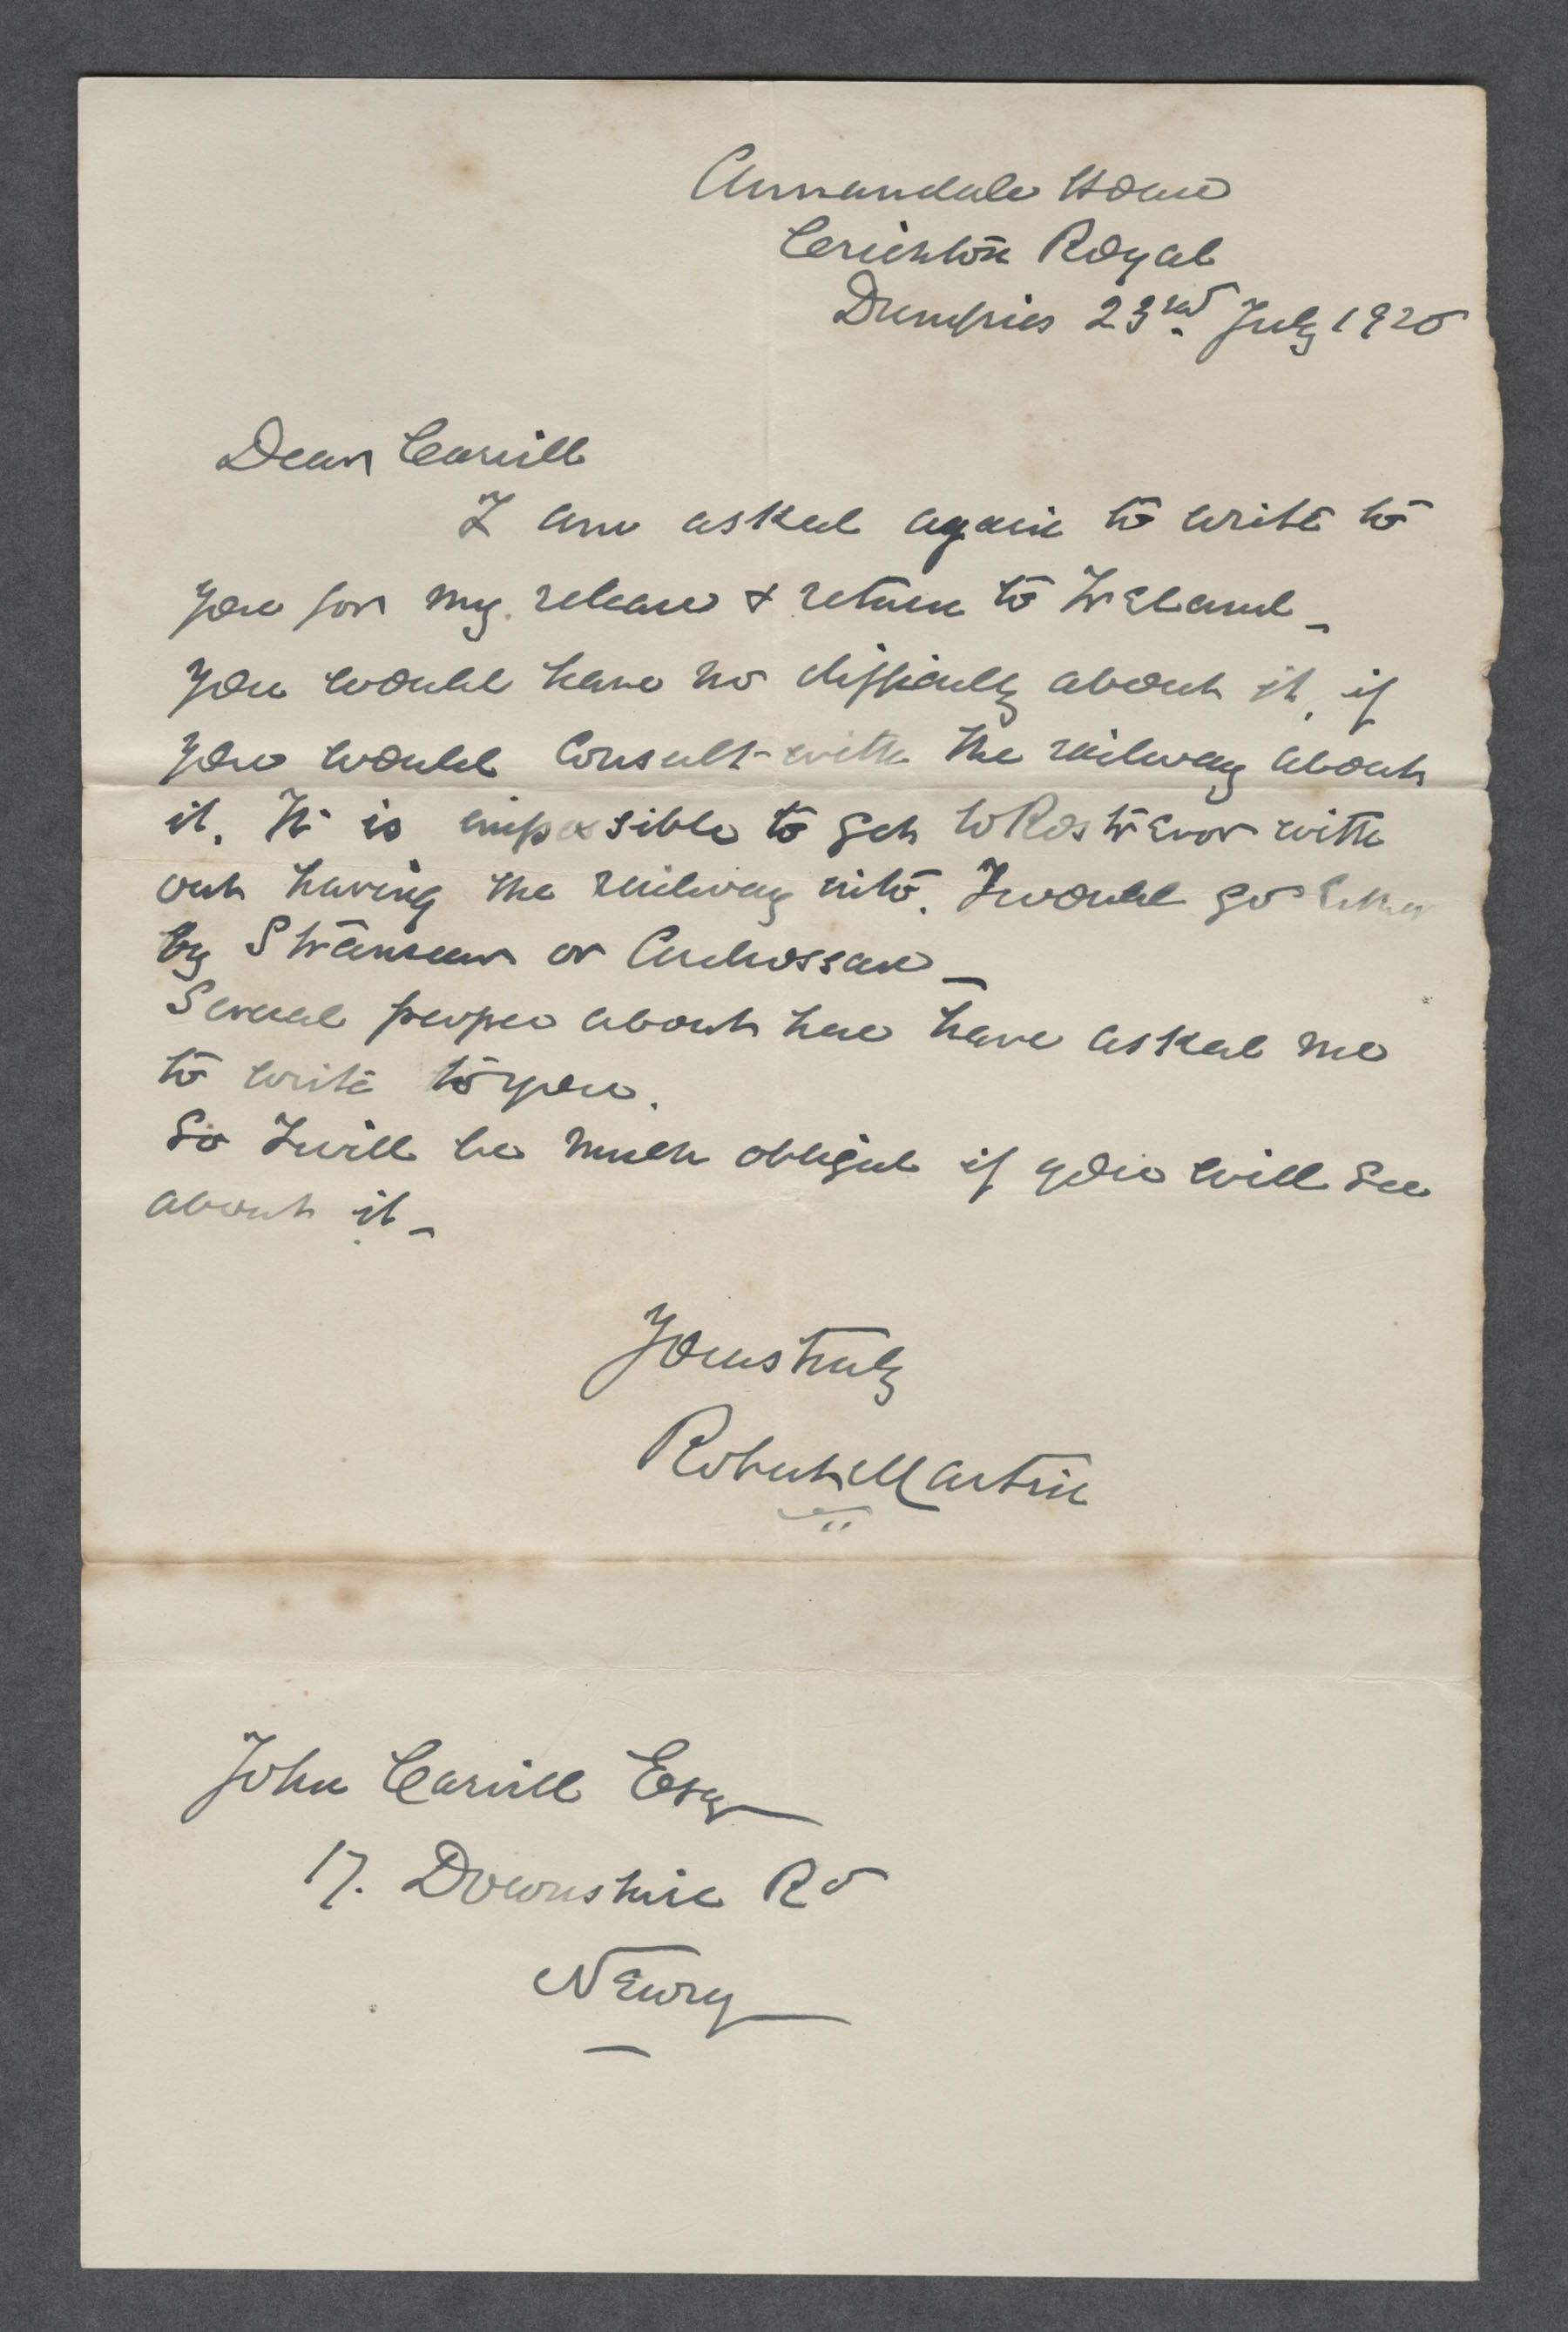 Annandale House
Crichton Royal
Dumfries 23rd July 1920
Dear Carvill
I am asked again to write to
you for my release & return to Ireland_
you would have no difficulty about it, if
you would Consult with the railway about
it. It is impossible to get to Rostrevor with
out having the railway into. I would go either
by Stranraer or Ardrossan_
Several people about here have asked me
to write to you.
So I will be much obliged if you will see
about it_
Yours truly
Robert Martin
John Carvill Esq
17. Downshire Rd
Newry